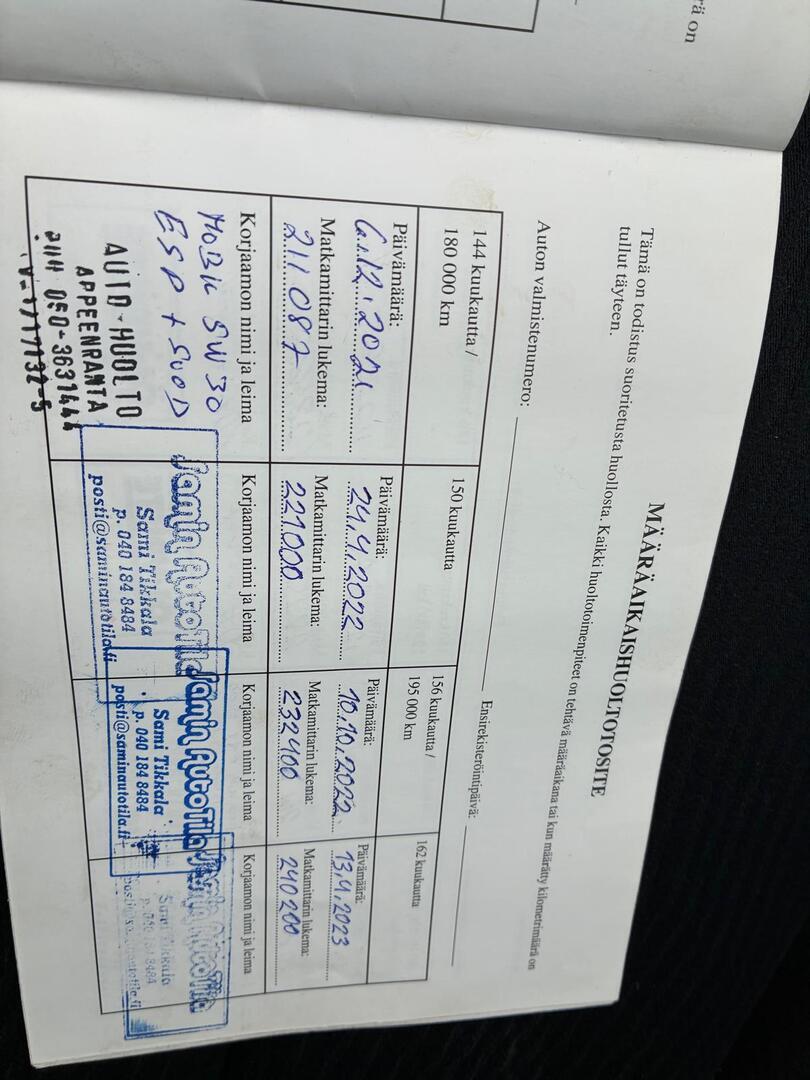 rä on
MÄÄRÄAIKAISHUOLTOTOSITE
Tämä on todistus suoritetusta huollosta. Kaikki huoltotoimenpiteet on tehtävä määräaikana tai kun määrätty kilometrimäärä on
tullut täyteen.
Auton valmistenumero:
Ensirekisteröintipäivä:
144 kuukautta /
180 000 km
Päivämäärä:
6.12.2021
Matkamittarin lukema:
211 087
Korjaamon nimi ja leima
MOBIL 5W30
ESP + SUOD
AUTO-HUOLTO
APPEENRANTA
050-3631444
150 kuukautta
Päivämäärä:
24.4.2022
Matkamittarin lukema:
221000
Korjaamon nimi ja leima
Samin AutoTila
Sami Tikkala
p. 040 184 8484
posti@saminautotila.fi
156 kuukautta /
195 000 km
Päivämäärä:
10.10.2022
Matkamittarin lukema:
232400
Korjaamon nimi ja leima
Samin AutoTila
Sami Tikkala
p. 040 184 8484
posti@saminautotila.fi
162 kuukautta
Päivämäärä:
13.4.2023
Matkamittarin lukema:
240200
Korjaamon nimi ja leima
Samin AutoTila
Sami Tikkala
p. 040 184 8484
posti@saminautotila.fi